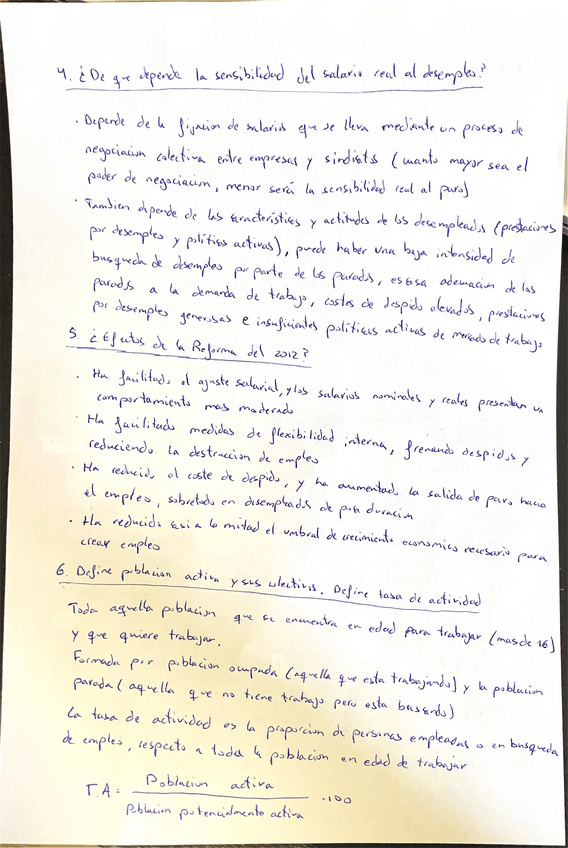 4. ¿De que depende la sensibilidad del salario real al desempleo?
· Depende de la fijacion de salarios que se lleva mediante un proceso de
negociacion colectiva entre empresas y sindictos (cuanto mayor sea el
poder de negociacion, menor será la sensibilidad real al paro)
· Tambien depende de las caracteristicas y actitudes de los desempleados (prestaciones
por desempleo y politicas activas), puede haber una baja intensidad de
busqueda de desempleo por parte de los parados, escasa adecuacion de los
parados a la demanda de trabajo, costes de despido elevados, prestaciones
por desempleo generosas e insuficientes politicas activas de mercado de trabajo
5. ¿Efectos de la Reforma del 2012?
· Ha facilitado el ajuste salarial, y los salarios nominales y reales presentan un
comportamiento mas moderado
· Ha facilitado medidas de flexibilidad interna, frenando despidos y
reduciendo la destruccion de empleo
· Ha reducido el coste de despido, y ha aumentado la salida de paro hacia
el empleo, sobretodo en desempleados de poca duracion
· Ha reducido casi a la mitad el umbral de crecimiento economico necesario para
crear empleo
6. Define poblacion activa y sus colectivos. Define tasa de actividad
Toda aquella poblacion que se encuentra en edad para trabajar (mas de 16)
y que quiere trabajar.
Formada por poblacion ocupada (aquella que esta trabajando) y la poblacion
parada (aquella que no tiene trabajo pero esta buscando)
La tasa de actividad es la proporcion de personas empleadas o en busqueda
de empleo, respecto a toda la poblacion en edad de trabajar
T.A = Poblacion activa / Poblacion potencialmente activa · 100